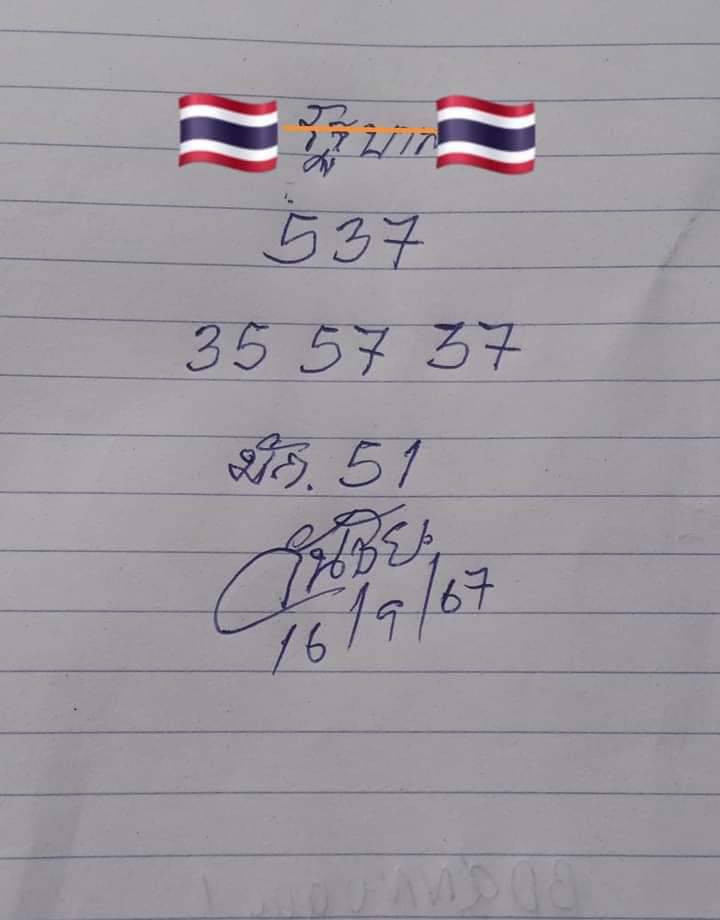 รัฐบาล
537
35 57 37
มัก. 51
16/9/67